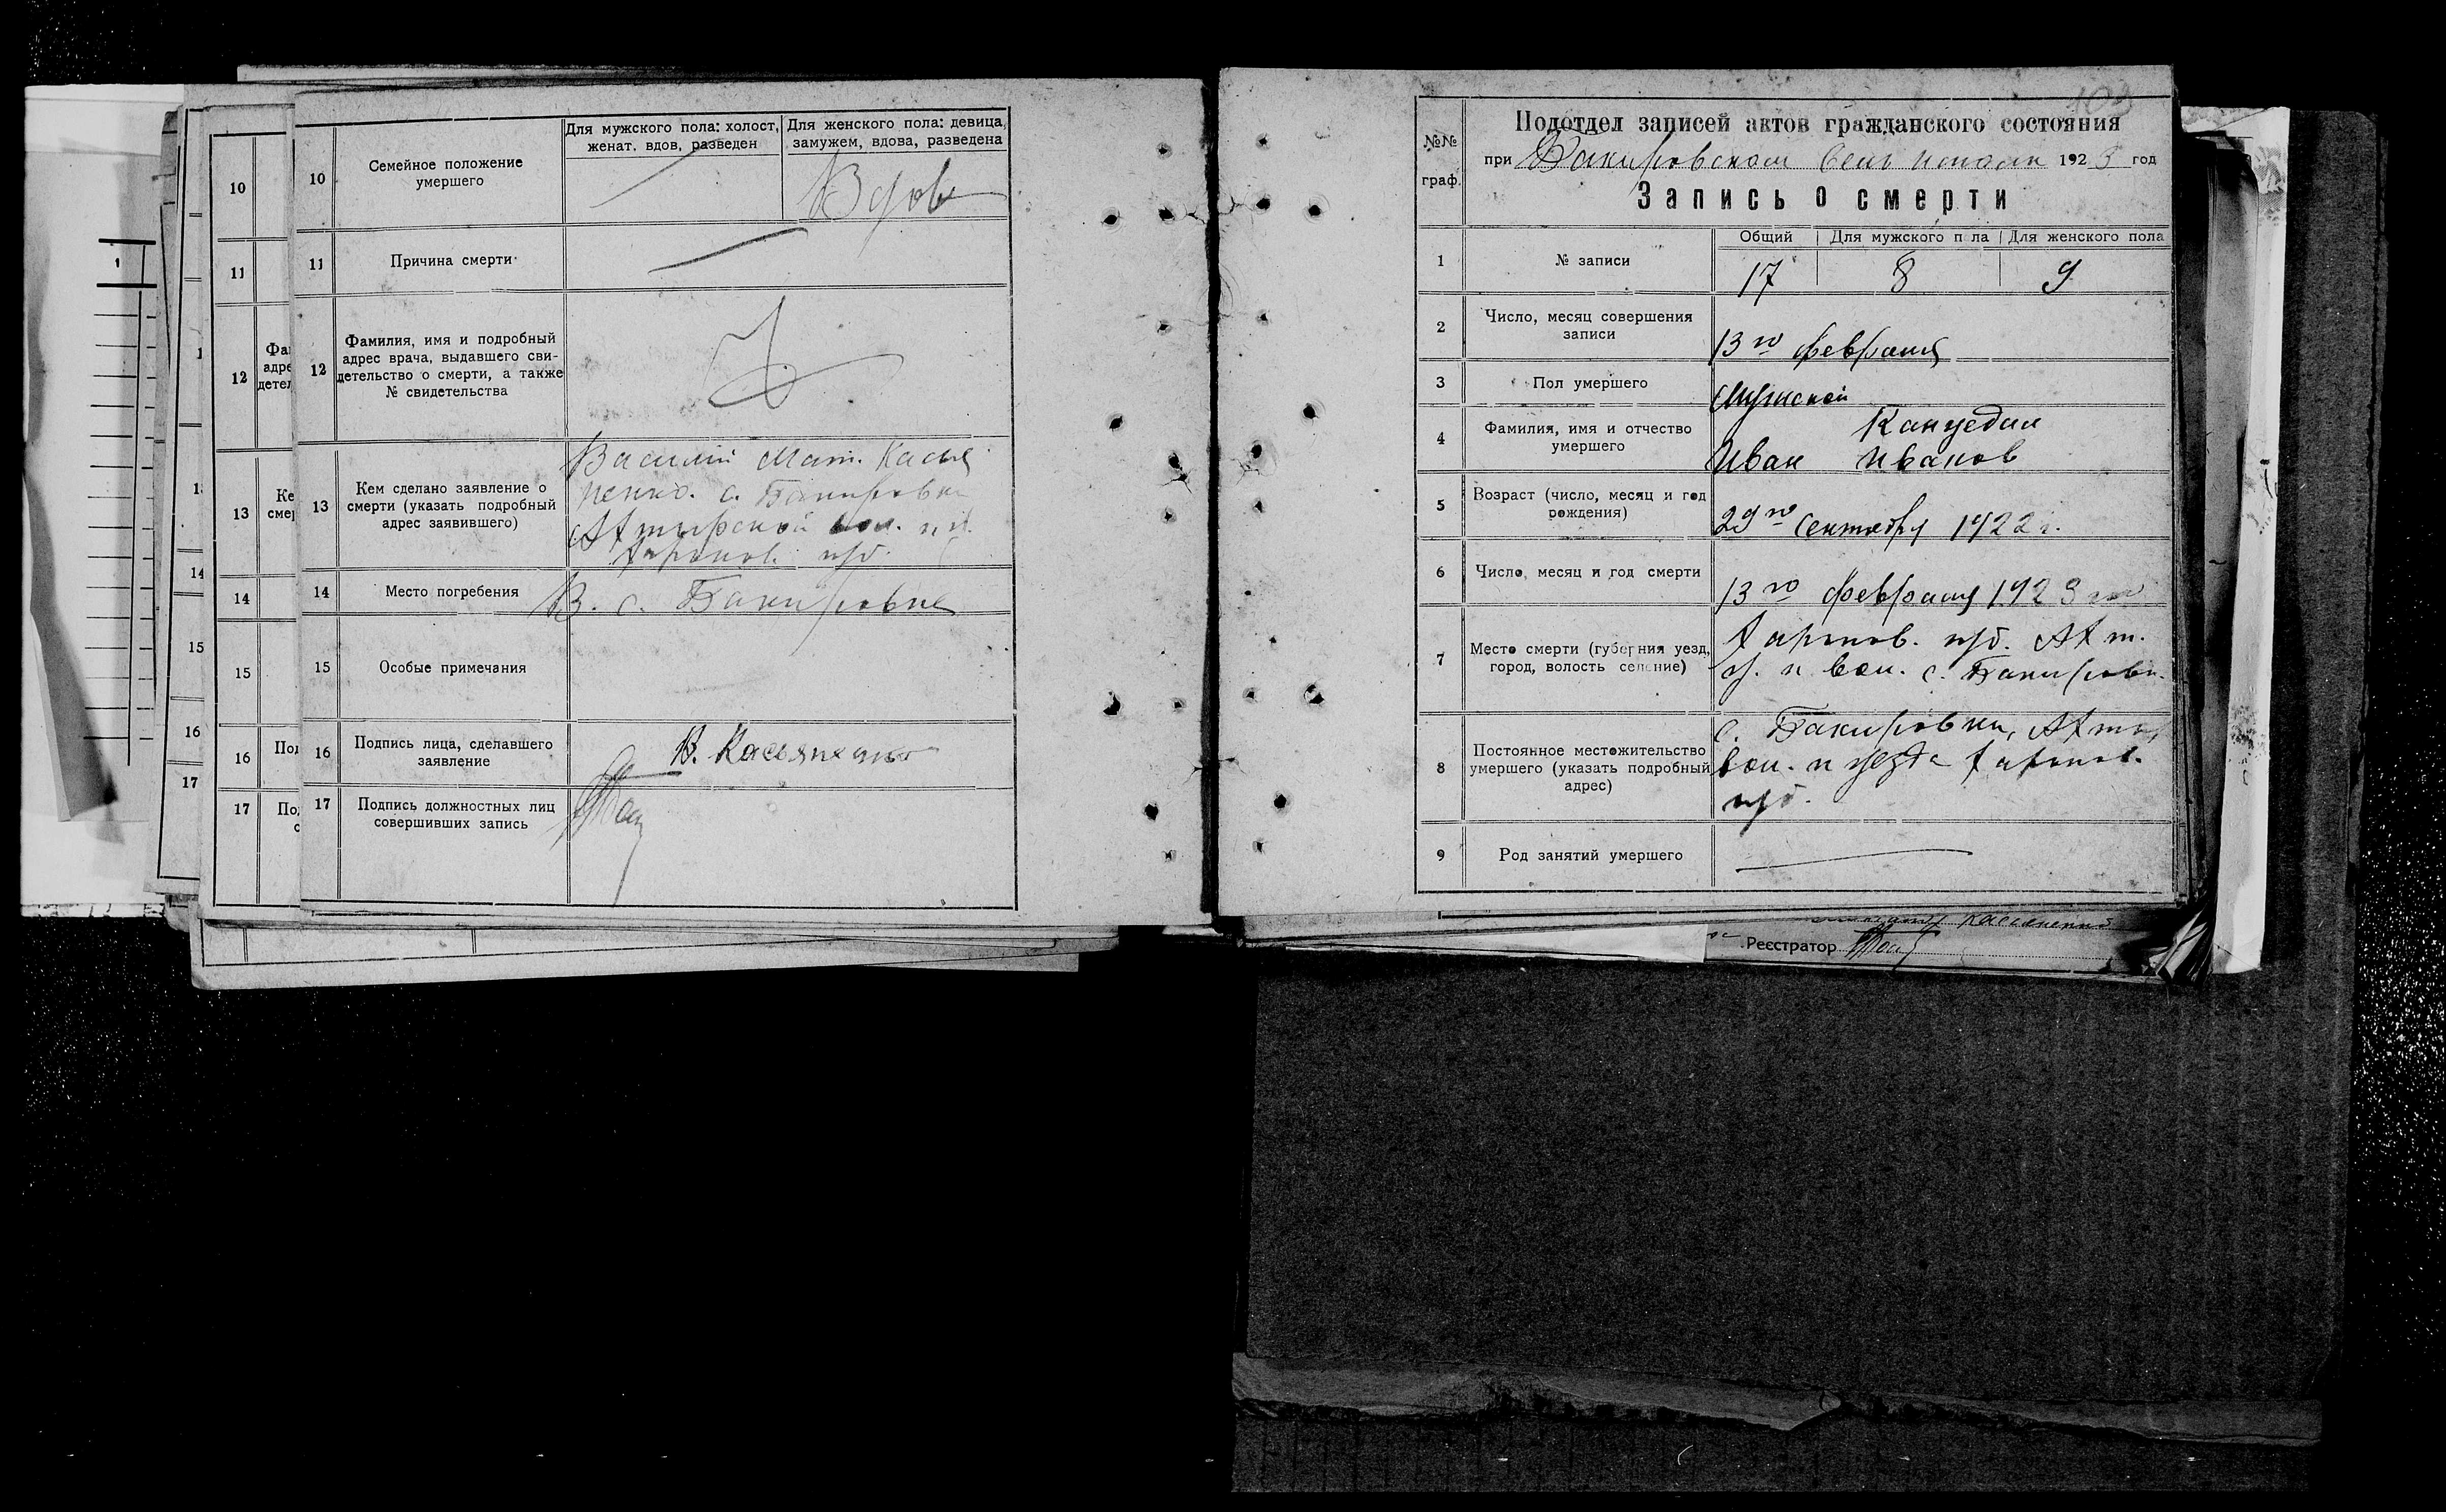 10
11
12
13
14
15
16
17
10
Семейное положение
умершего
Для мужского пола: холост,
женат, вдов, разведен
Для женского пола: девица,
замужем, вдова, разведена
Вдова
11
Причина смерти
12
Фамилия, имя и подробный
адрес врача, выдавшего сви-
детельство о смерти, а также
№ свидетельства
13
Кем сделано заявление о
смерти (указать подробный
адрес заявившего)
Василий Мат. Касья
ненко. с. Бакировки
Ахтырской вол. и у.
Харьков. губ.
14
Место погребения
В. с. Бакировке
15
Особые примечания
16
Подпись лица, сделавшего
заявление
В. Касьяненко
17
Подпись должностных лиц
совершивших запись
№№
граф.
Подотдел записей актов гражданского состояния
при Бакировском Сель исполк 1923 год
Запись о смерти
1
№ записи
Общий
Для мужского п ла
Для женского пола
17
8
9
2
Число, месяц совершения
записи
13го февраля
3
Пол умершего
Мужской
4
Фамилия, имя и отчество
умершего
Канцедал
Иван Иванов
5
Возраст (число, месяц и год
рождения)
29го Сентября 1922 г.
6
Число, месяц и год смерти
13го февраля 1923
7
Место смерти (губерния уезд,
город, волость селение)
Харьков. губ. Ахт.
у. и вол. с. Бакировк.
8
Постоянное местожительство
умершего (указать подробный
адрес)
с. Бакировки, Ахты,
вол. и уезда Харьков.
губ.
9
Род занятий умершего
Касьяненко
Реєстратор